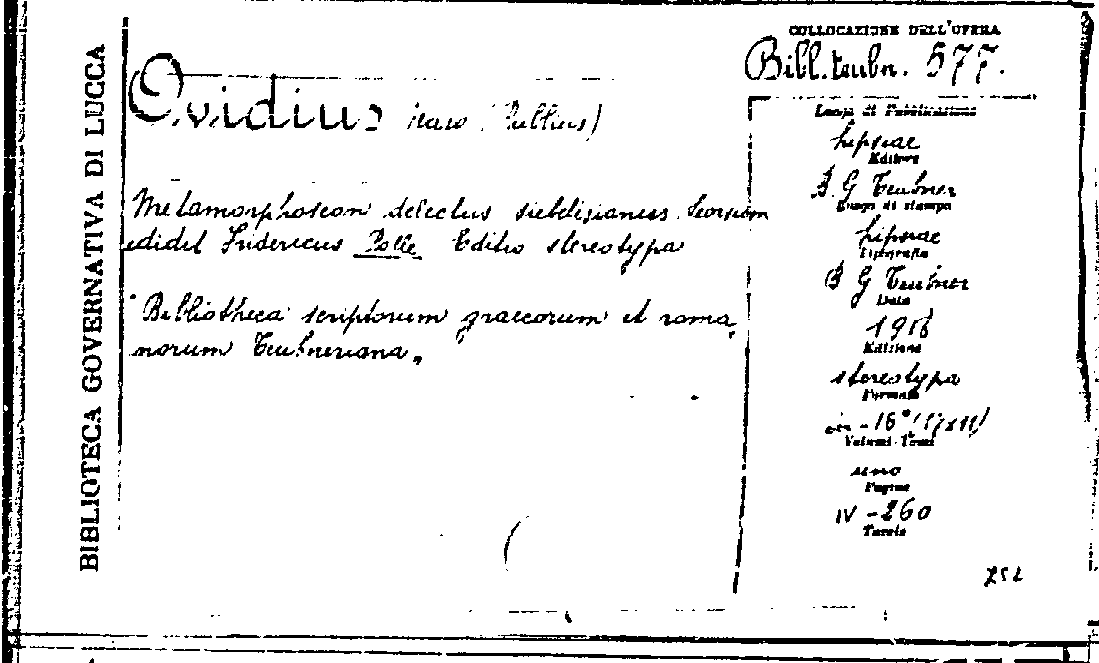 BIBLIOTECA GOVERNATIVA DI LUCCA
COLLOCAZIONE DELL'OPERA
Bibl. teubn. 577.
Ovidius Naso (Publius)
Metamorphoseon delectus siebelisianus seorsum
edidit Fridericus Polle Editio stereotypa
"Bibliotheca scriptorum graecorum et roma
norum Teubneriana"
Luogo di Pubblicazione
Lipsiae
Editore
B. G Teubner
Luogo di stampa
Lipsiae
Tipografia
B G Teubner
Data
Edizione
stereotypa
Formato
in - 16°
Volumi-Tomi
uno
Pagine
IV - 260
Tavole